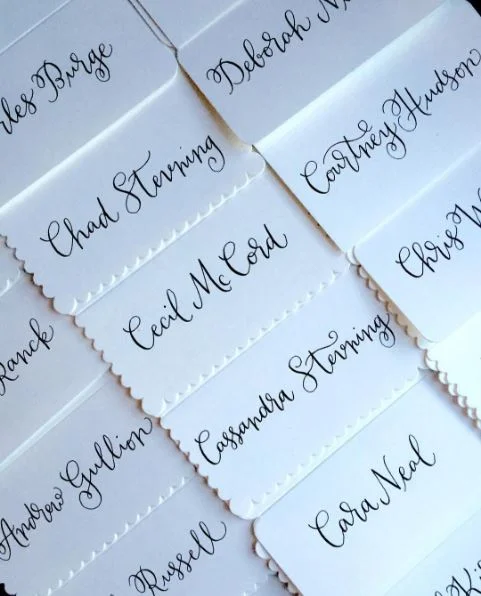 Burge
Deborah
Chad Sterning
Courtney Hudson
Cecil McCord
Chris
Ranck
Cassandra Sterning
Andrew Gullion
Cara Neal
Russell